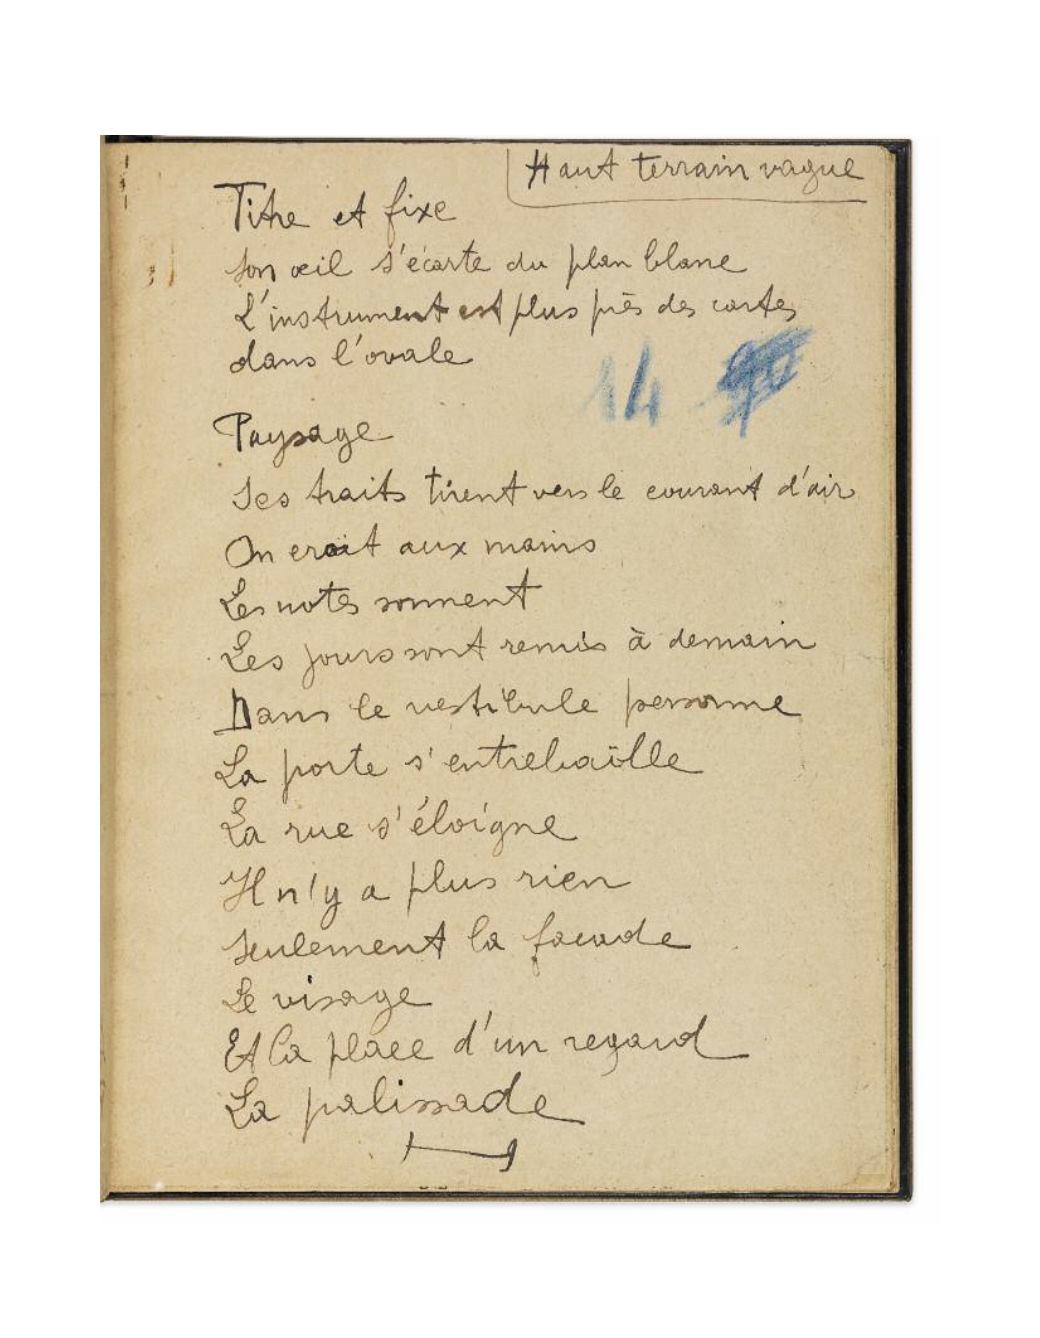 Haut terrain vague
Titre et fixe
Son œil s'écarte du plan blanc
L'instrument est plus près des cartes
dans l'ovale
14
Paysage
Ses traits tirent vers le courant d'air
On croit aux mains
Les notes sonnent
Les jours sont remis à demain
Dans le vestibule personne
La porte s'entrebaîlle
La rue s'éloigne
Il n'y a plus rien
seulement la façade
Le visage
Et la place d'un regard
La palissade